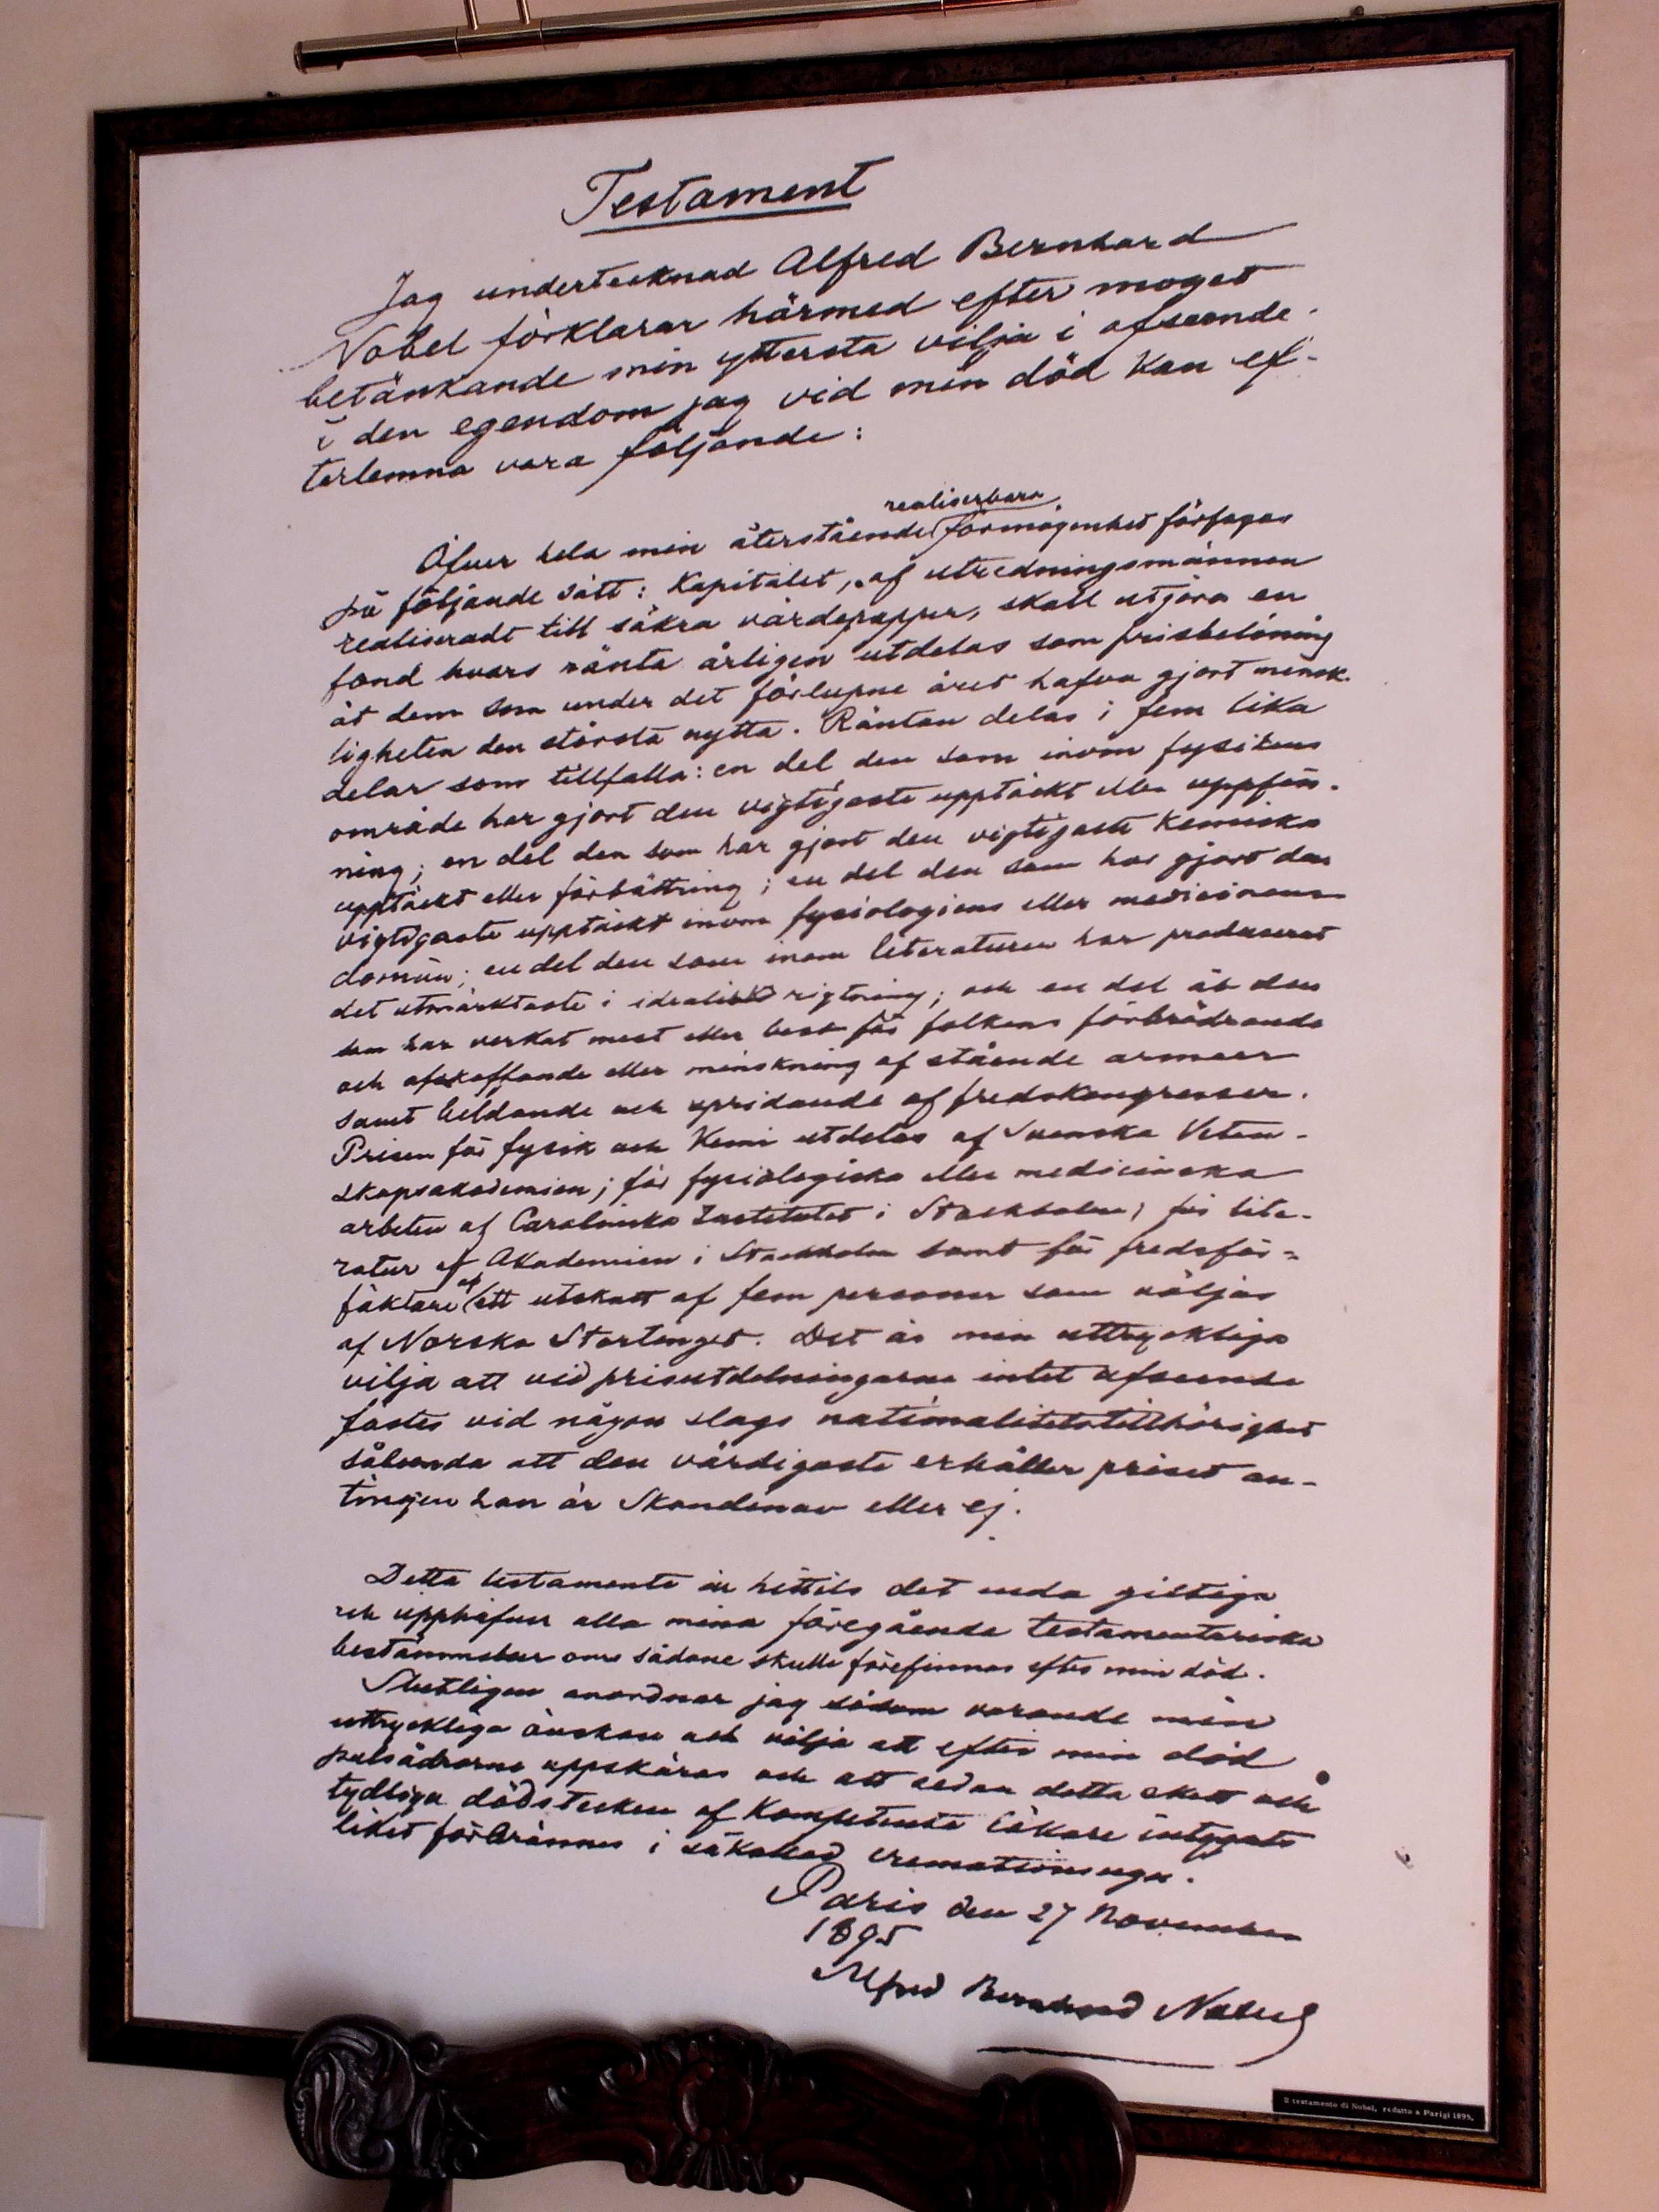 Testament
Jag undertecknad Alfred Bernhard
Nobel förklarar härmed efter moget
betänkande min yttersta vilja i afseende
å den egendom jag vid min död kan ef-
terlemna vara följande:
realiserbara
Öfver hela min återstående förmögenhet förfogas
på följande sätt: Kapitalet, af utredningsmännen
realiseradt till säkra värdepapper, skall utgöra en
fond hvars ränta årligen utdelas som prisbelöning
åt dem som under det förlupne året hafva gjort mensk-
ligheten den största nytta. Räntan delas i fem lika
delar som tillfalla: en del den som inom fysikens
område har gjort den vigtigaste upptäckt eller uppfin-
ning; en del den som har gjort den vigtigaste kemiska
upptäckt eller förbättring; en del den som har gjort den
vigtigaste upptäckt inom fysiologiens eller medicinens
domän; en del den som inom literaturen har producerat
det utmärktaste i idealisk rigtning; och en del åt den
som har verkat mest eller best för folkens förbrödrande
och afskaffande eller minskning af stående armeer
samt bildande och spridande af fredskongresser.
Prisen för fysik och kemi utdelas af Svenska Veten-
skapsakademien; för fysiologiska eller medicinska
arbeten af Carolinska Institutet i Stockholm; för lite-
ratur af Akademien i Stockholm samt för fredsför-
fäktare af ett utskott af fem personer som väljas
af Norska Stortinget. Det är min uttryckliga
vilja att vid prisutdelningarne intet afseende
fästes vid någon slags nationalitetstillhörighet
sålunda att den värdigaste erhåller priset an-
tingen han är Skandinav eller ej.
Detta testamente är hittils det enda giltiga
och upphäfver alla mina föregående testamentariska
bestämmelser om sådane skulle förefinnas efter min död.
Slutligen anordnar jag såsom varande min
uttryckliga önskan och vilja att efter min död
pulsådrorna uppskäras och att sedan detta skett och
tydliga dödstecken af kompetenta läkare intygats
liket förbrännes i såkallad cremationsugn.
Paris den 27 November
1895
Alfred Bernhard Nobel
Il testamento di Nobel, redatto a Parigi 1895.